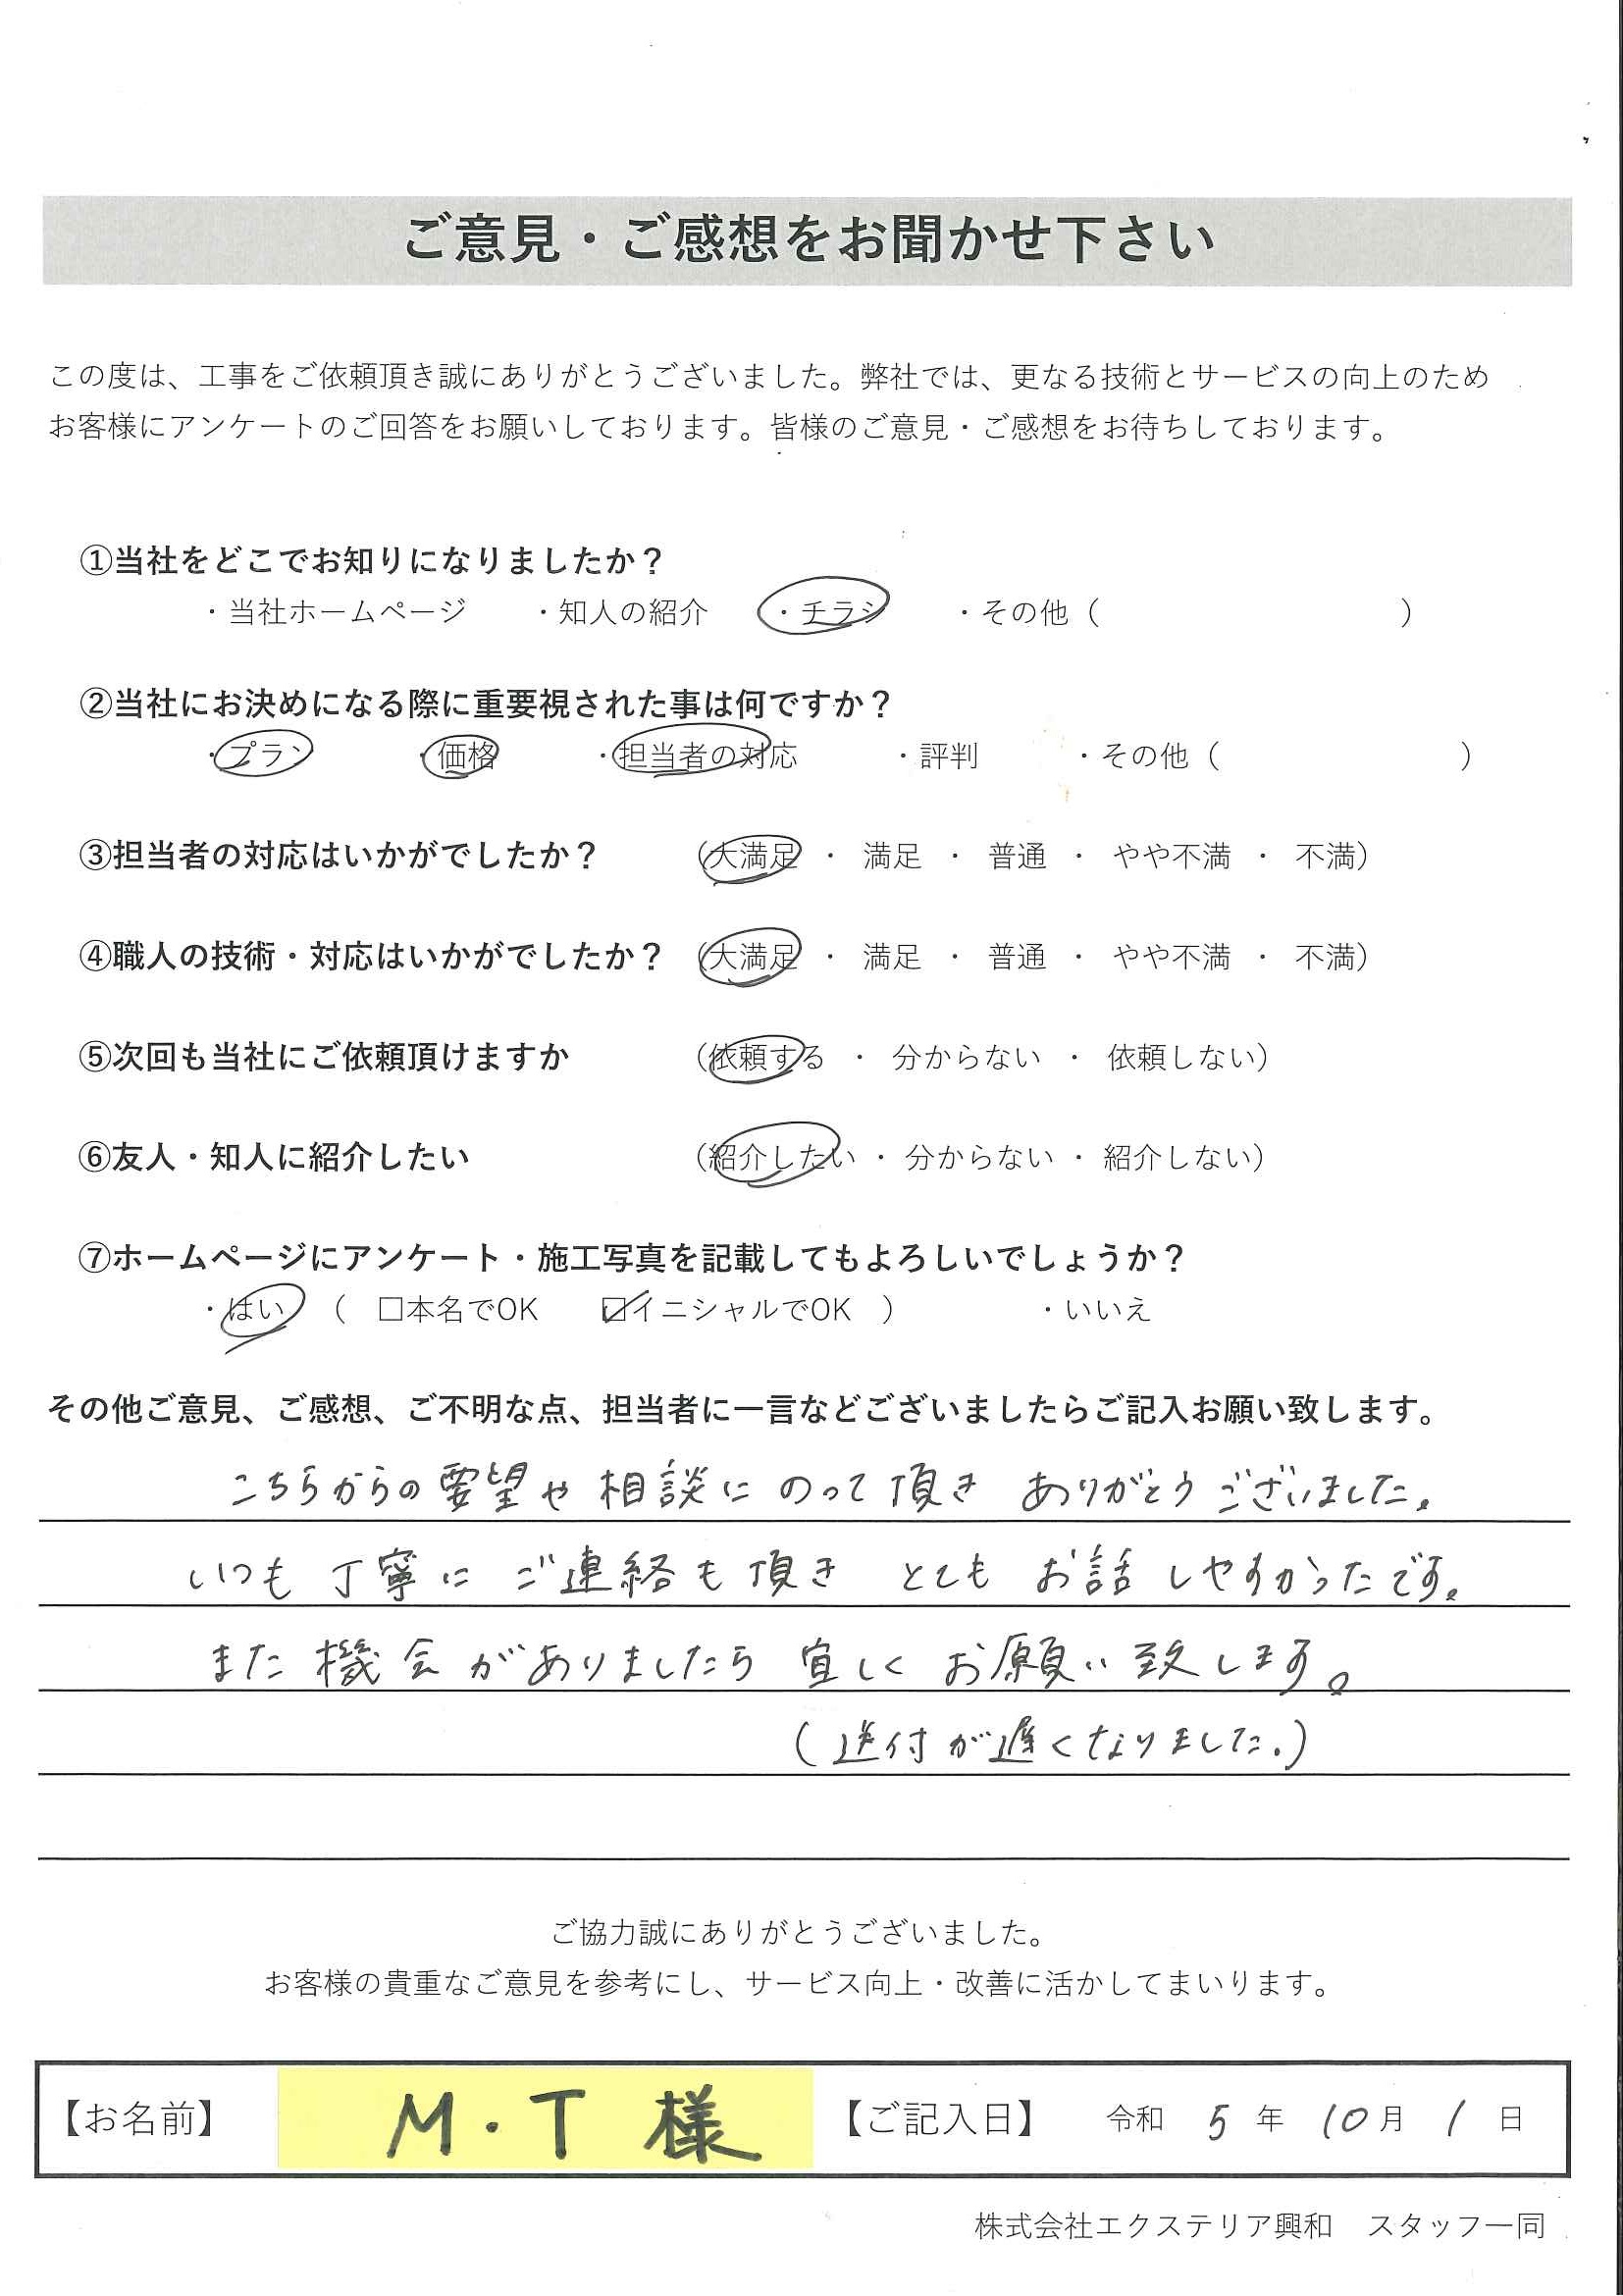 ご意見・ご感想をお聞かせ下さい
この度は、工事をご依頼頂き誠にありがとうございました。弊社では、更なる技術とサービスの向上のため
お客様にアンケートのご回答をお願いしております。皆様のご意見・ご感想をお待ちしております。
①当社をどこでお知りになりましたか？
・当社ホームページ ・知人の紹介 ・チラシ ・その他（ ）
②当社にお決めになる際に重要視された事は何ですか？
・プラン ・価格 ・担当者の対応 ・評判 ・その他（ ）
③担当者の対応はいかがでしたか？ （大満足 ・ 満足 ・ 普通 ・ やや不満 ・ 不満）
④職人の技術・対応はいかがでしたか？ （大満足 ・ 満足 ・ 普通 ・ やや不満 ・ 不満）
⑤次回も当社にご依頼頂けますか （依頼する ・ 分からない ・ 依頼しない）
⑥友人・知人に紹介したい （紹介したい ・ 分からない ・ 紹介しない）
⑦ホームページにアンケート・施工写真を記載してもよろしいでしょうか？
・はい （ □本名でOK ☑イニシャルでOK ） ・いいえ
その他ご意見、ご感想、ご不明な点、担当者に一言などございましたらご記入お願い致します。
こちらからの要望や相談にのって頂き ありがとうございました。
いつも丁寧に ご連絡も頂き とても お話しやすかったです。
また機会がありましたら 宜しく お願い致します。
（送付が遅くなりました.）
ご協力誠にありがとうございました。
お客様の貴重なご意見を参考にし、サービス向上・改善に活かしてまいります。
【お名前】 M・T 様 【ご記入日】 令和 5 年 10 月 1 日
株式会社エクステリア興和 スタッフ一同